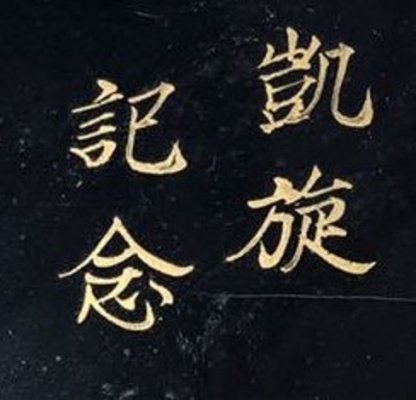 凱旋
記念